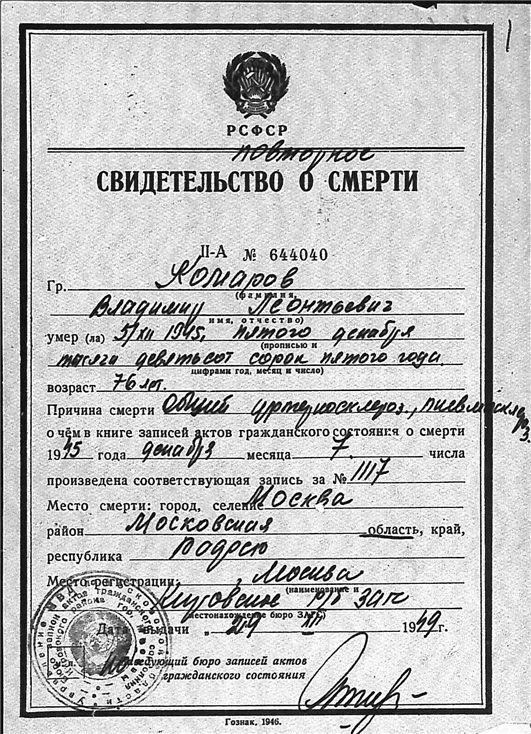 РСФСР
повторное
СВИДЕТЕЛЬСТВО О СМЕРТИ
II-А № 644040
Гр. Комаров
(фамилия,
Владимир Леонтьевич
имя, отчество)
умер (ла) 5/XII 1945, пятого декабря
(прописью и
тысяча девятьсот сорок пятого года
цифрами год, месяц и число)
возраст 76 лет.
Причина смерти Общий артериосклероз, пневмосклероз
о чём в книге записей актов гражданского состояния о смерти
1945 года декабря месяца 7. числа
произведена соответствующая запись за № 1117
Место смерти: город, селение Москва
район Московская область, край,
республика
Место регистрации: Москва
(наименование и
загс
местонахождение бюро ЗАГС)
Дата выдачи 1949г.
Заведующий бюро записей актов
гражданского состояния
Гознак. 1946.